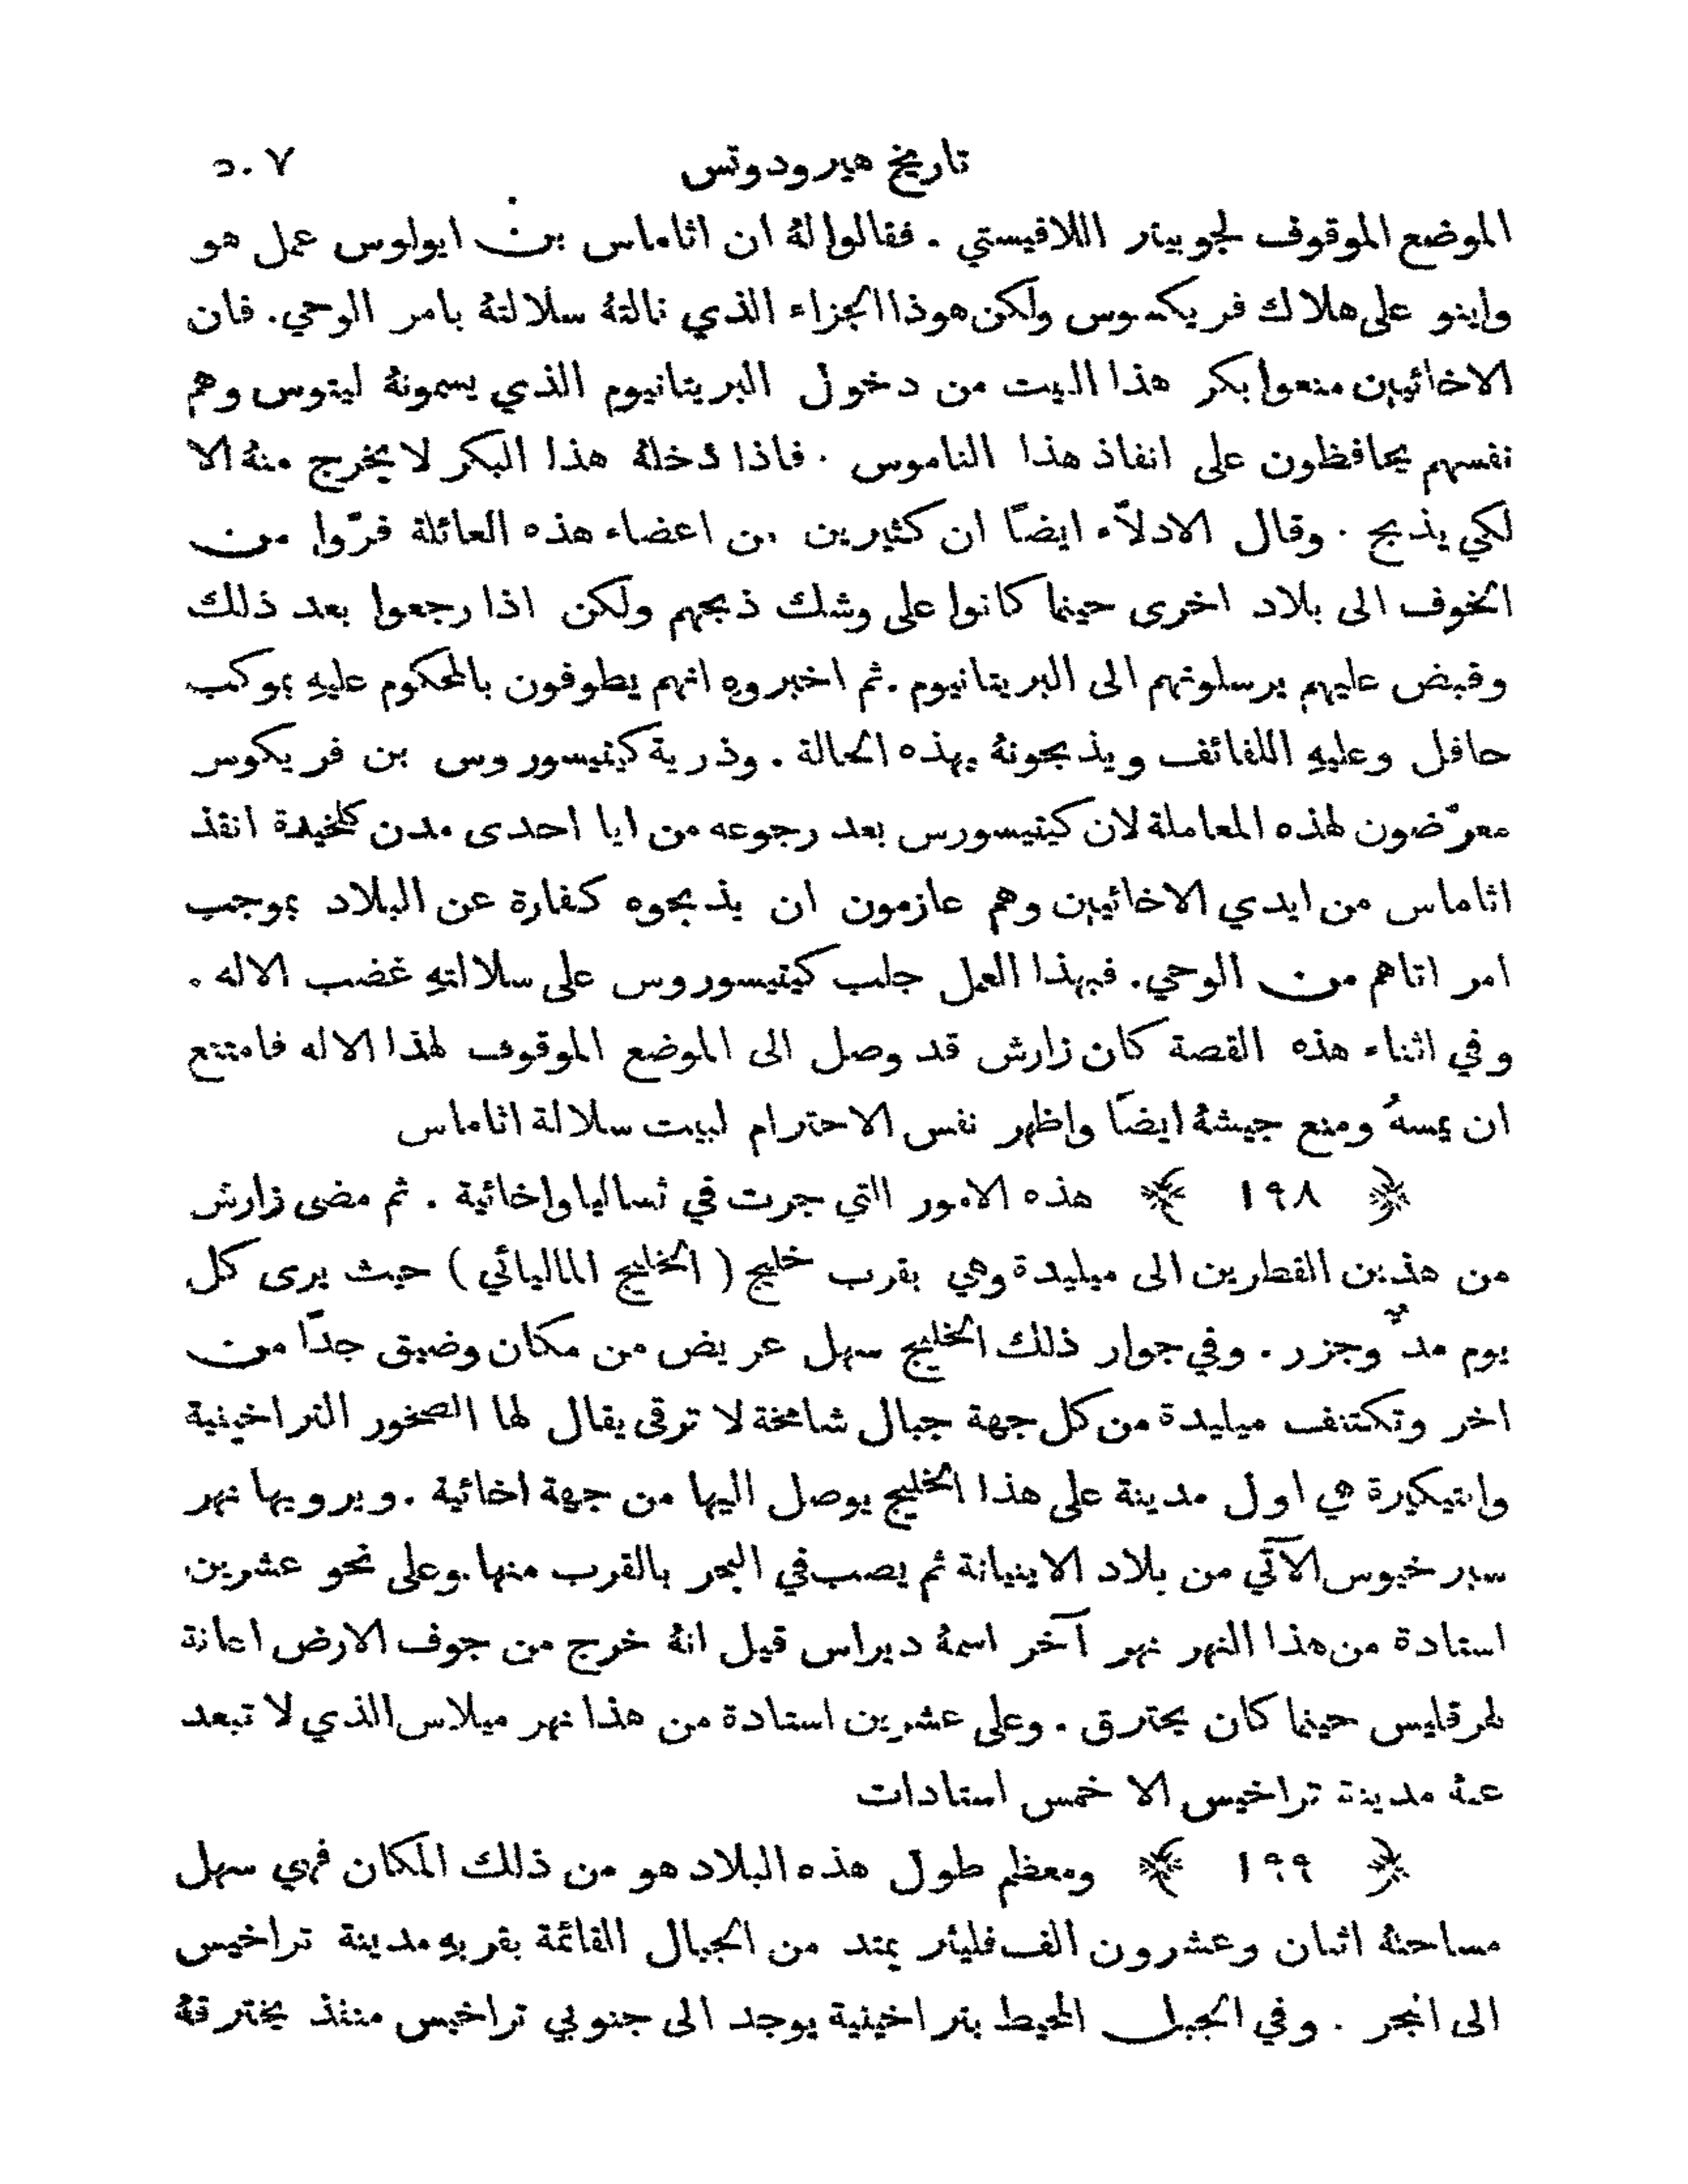 تاريخ هيرودوتس ٥٠٧
الموضع الموقوف لجوبيتار اللافيستي . فقالوا لهُ ان اثاماس بن ايولوس عمل هو
واينو على هلاك فريكسوس ولكن هوذا الجزاء الذي نالتهُ سلالتهُ بامر الوحي. فان
الاخائيين منعوا بكر هذا البيت من دخول البريتانيوم الذي يسمونهُ ليتوس وهم
نفسهم يحافظون على انفاذ هذا الناموس . فاذا دخلهُ هذا البكر لا يخرج منهُ الا
لكي يذبح . وقال الادلاَّء ايضًا ان كثيرين من اعضاء هذه العائلة فرّوا من
الخوف الى بلاد اخرى حينما كانوا على وشك ذبحهم ولكن اذا رجعوا بعد ذلك
وقبض عليهم يرسلونهم الى البريتانيوم . ثم اخبروهِ انهم يطوفون بالمحكوم عليهِ بموكب
حافل وعليهِ اللفائف ويذبحونهُ بهذه الحالة . وذرية كيتيسوروس بن فريكوس
معرّضون لهذه المعاملة لان كيتيسورس بعد رجوعه من ايا احدى مدن كلخيدة انقذ
اثاماس من ايدي الاخائيين وهم عازمون ان يذبحوه كفارة عن البلاد بموجب
امر اتاهم من الوحي. فبهذا العمل جلب كيتيسوروس على سلالتهِ غضب الاله .
وفي اثناء هذه القصة كان زارش قد وصل الى الموضع الموقوف لهذا الاله فامتنع
ان يمسهُ ومنع جيشهُ ايضًا واظهر نفس الاحترام لبيت سلالة اثاماس
﴿ ١٩٨ ﴾ هذه الامور التي جرت في ثساليا واخائية . ثم مضى زارش
من هذين القطرين الى ميليدة وهي بقرب خليج ( الخليج الماليائي ) حيث يرى كل
يوم مدٌّ وجزر . وفي جوار ذلك الخليج سهل عريض من مكان وضيق جدًّا من
اخر وتكتنف ميليدة من كل جهة جبال شامخة لا ترقى يقال لها الصخور التراخينية
وانتيكيرة هي اول مدينة على هذا الخليج يوصل اليها من جهة اخائية . ويرويها نهر
سبرخيوس الآتي من بلاد الاينيانة ثم يصب في البحر بالقرب منها.وعلى نحو عشرين
استادة من هذا النهر نهر آخر اسمهُ ديراس قيل انهُ خرج من جوف الارض اعانة
لهرقليس حينما كان يحترق . وعلى عشرين استادة من هذا نهر ميلاس الذي لا تبعد
عنهُ مدينة تراخيس الا خمس استادات
﴿ ١٩٩ ﴾ ومعظم طول هذه البلاد هو من ذلك المكان فهي سهل
مساحتهُ اثنان وعشرون الف فليثر يمتد من الجبال القائمة بقربهِ مدينة تراخيس
الى البحر . وفي الجبل المحيط بتراخينية يوجد الى جنوبي تراخيس منفذ يخترقهُ